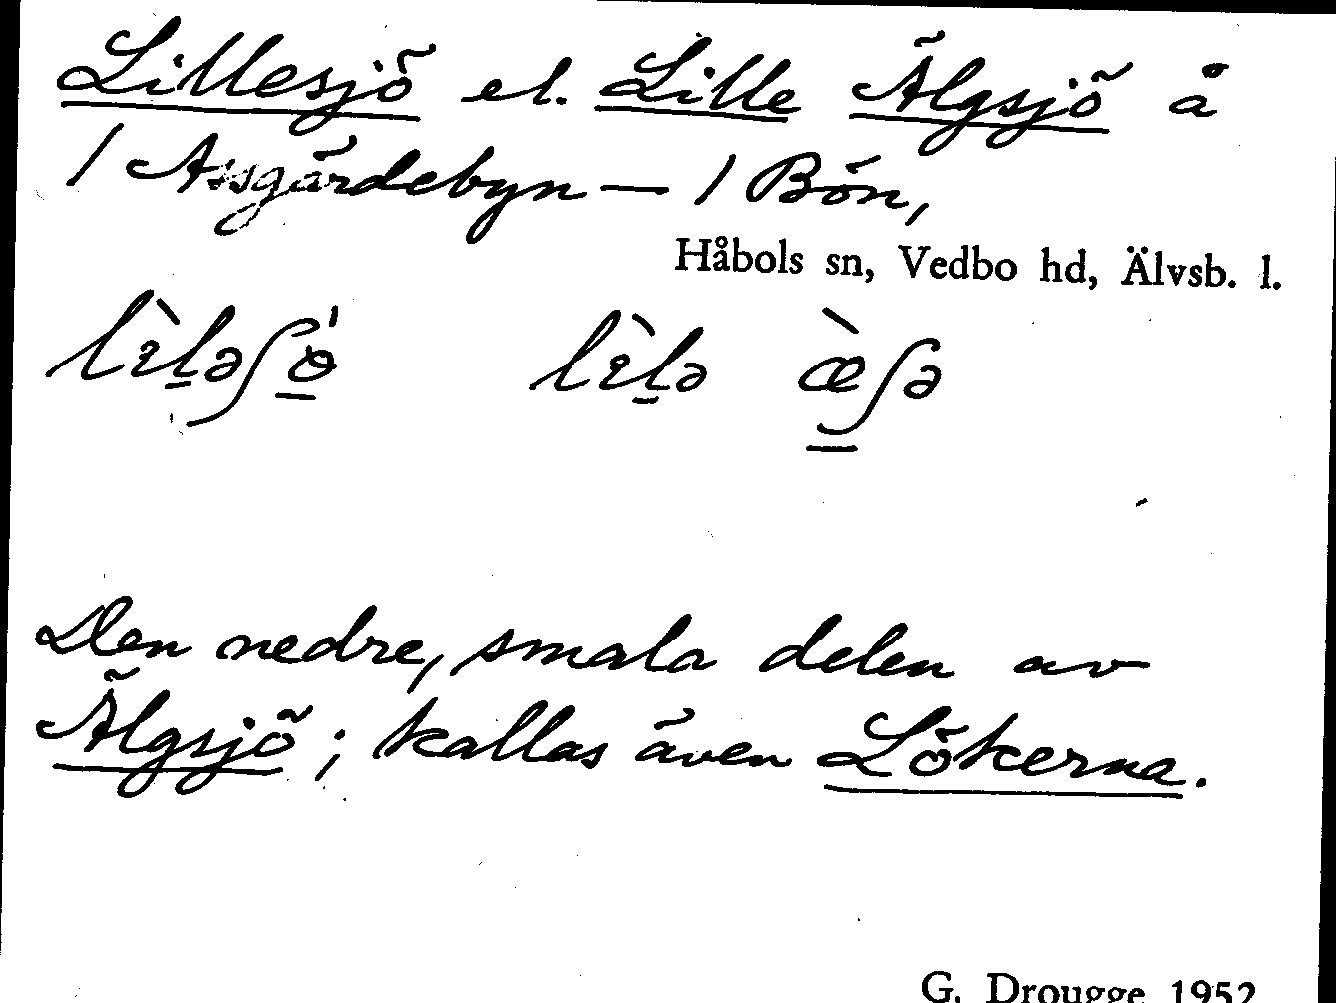 Lillesjö el. Lille Älgsjö å
1 Assgärdebyn — 1 Bön,
Håbols sn, Vedbo hd, Älvsb. l.
Den nedre, smala delen av
Älgsjö; kallas även Lökerna.
G. Drougge 1952